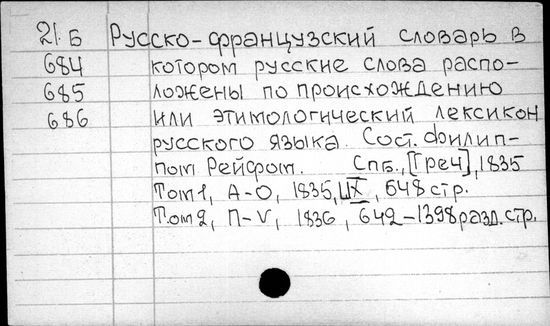 21.Б Русско-французский словарь в
684 котором русские слова распо-
685 ложены по происхождению
686 или этимологический лексикон
русского языка. Сост. Филип-
пом Рейфом. Спб., [Греч], 1835
Том 1, А-О, 1835, 648 стр.
Том 2, П-V, 1836, 649-1398 разд. стр.